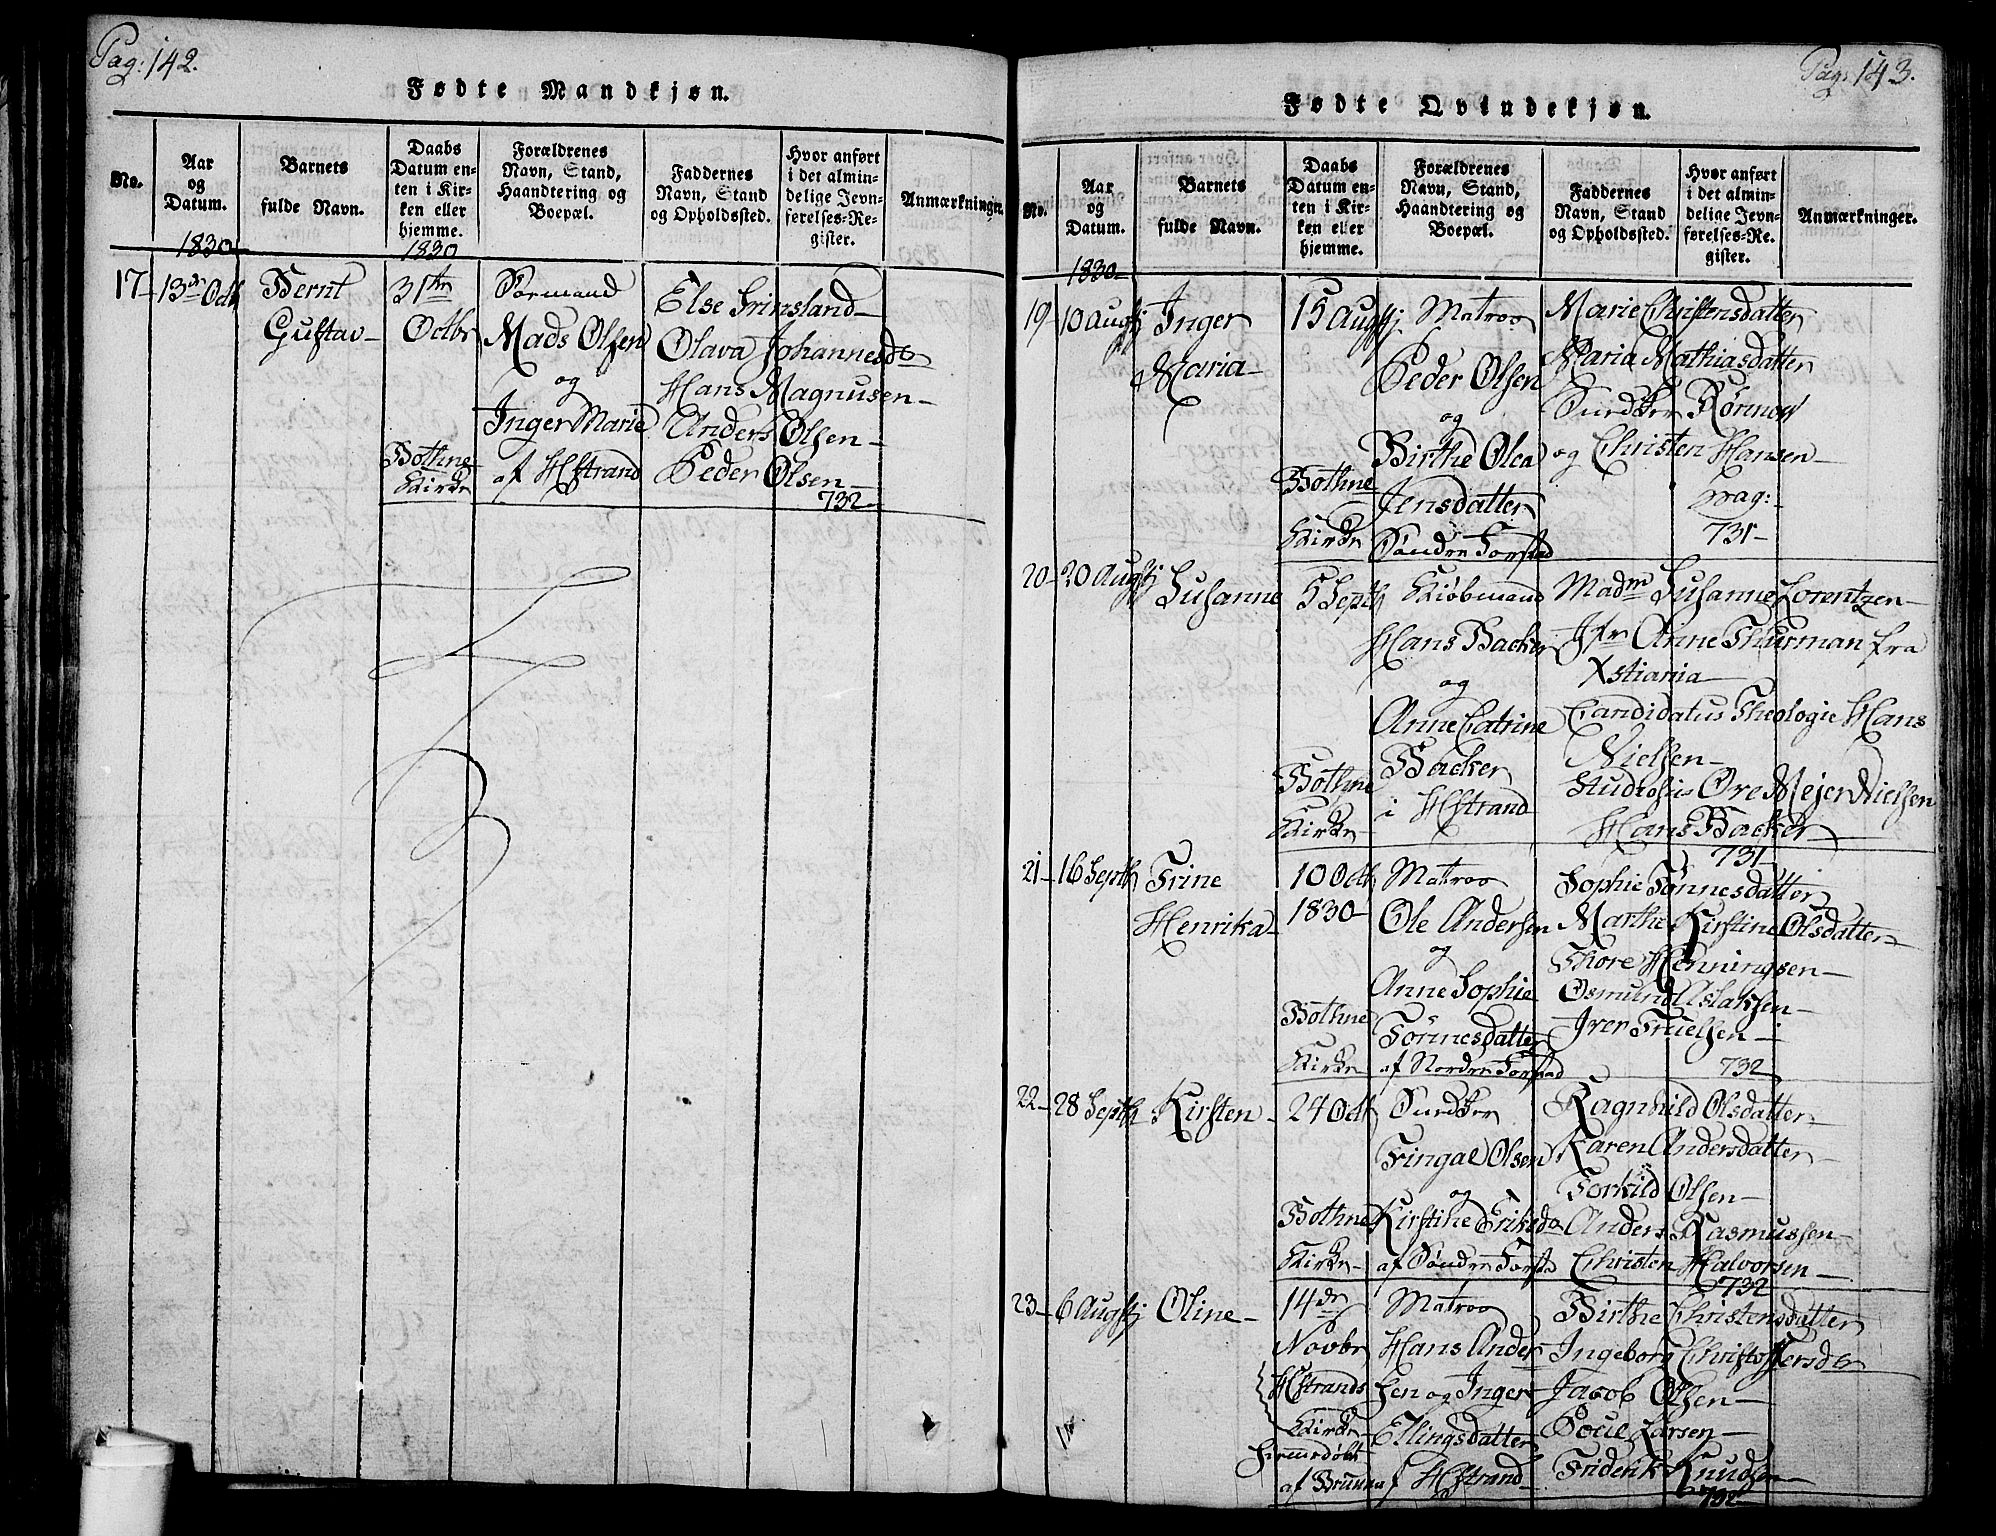 Pag: 142.
Fødte Mandkjøn.
No.
Aar
og
Datum.
Barnets
fulde Navn.
Daabs
Datum en-
ten i Kir-
ken eller
hjemme.
Forældrenes
Navn, Stand,
Haandtering og
Boepæl.
Faddernes
Navn, Stand
og Opholdssted.
Hvor anført
i det almin-
delige Jevn-
førelses-Re-
gister.
Anmærkninger.
1830
1830
17-
13de Octb
Bernt
Gustav-
31te
Octbr
Bothne
Kirke
Sørmand
Mads Olsen
og
Inger Marie
af HStrand
Else Grinsland-
Olava Johannesdr
Hans Magnusen-
Anders Olsen-
Peder Olsen-
732
Pag: 143.
Fødte Qvindekjøn.
No.
Aar
og
Datum.
Barnets
fulde Navn.
Daabs
Datum en-
ten i Kir-
ken eller
hjemme.
Forældrenes
Navn, Stand,
Haandtering og
Boepæl.
Faddernes
Navn, Stand
og Opholdssted.
Hvor anført
i det almin-
delige Jevn-
førelses-Re-
gister.
Anmærkninger.
1830
19
10 Augstj
Inger
Maria-
15 Augstj
Bothne
Kirke
Matros
Peder Olsen
og
Birthe Olea
Jensdatter
Søndre
Marie Christensdatter
Maria Mathiasdatter
og Christen Hansen-
731-
20-
20 Augstj
Susanne
5 Septb
Bothne
Kirke-
Kiøbmand
Hans Backer
og
Anne Catrine
Backer
i HStrand
Madm Susanne Lorentzen-
Jfr Anne Thurman fra
Xstiania-
Candidatus Theologie Hans
Nielsen-
Studiosus Ove Mejer Nielsen
Hans Backer
731
21-
16 Septb
Trine
Henrika-
10 Octb
1830-
Bothne
Kirke
Matros
Ole Andersen
og
Anne Sophie
Tönnesdatter
af Nordre
Sophie Tønnesdatter
Marthe Kirstine Olsdatter-
Thore Henningsen-
Osmund Aslaksen-
Iver Truelsen-
732
22-
28 Septb
Kirsten-
24 Octb
Bothne
Kirke-
Fingal Olsen
og
Kirstine Eriksda
af Søndre
Ragnhild Olsdatter-
Karen Andersdatter-
Torkild Olsen-
Anders Rasmussen-
Christen Halvorsen-
732
23-
6 Augstj
Oline-
14de
Novbr
HStrands
Kirke
af Bruun
Matros
Hans Ander
sen og Inger
Ellingsdatter
af HStrand-
Birthe Christensdatter
Ingeborg Christoffersdr
Jacob Olsen-
Poul Larsen-
Friderik Knudsen-
732